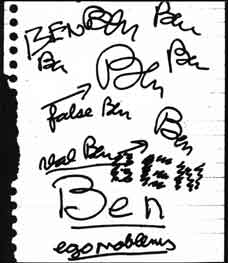 BEN Ben Ben
Ben Ben Ben
false Ben
Ben
real Ben
Ben
Ben
ego problems